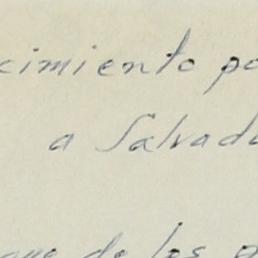 cimiento po
a Salvado
que de los